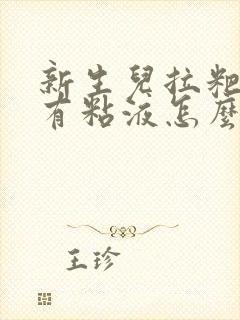 新生兒拉粑
有粘液怎麼
王珍